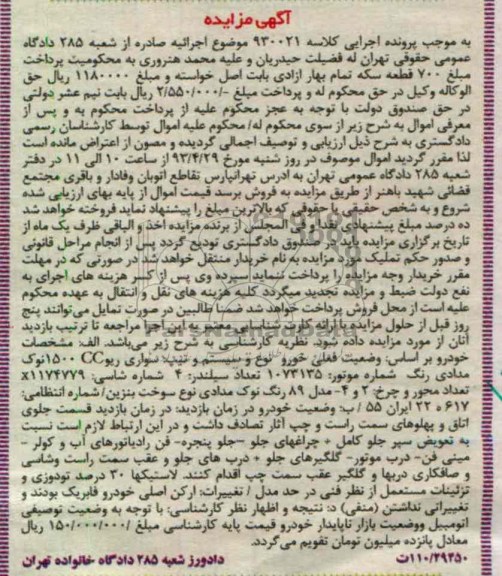 آگهی مزایده
به موجب پرونده اجرایی کلاسه ۹۳۰۰۲۱ موضوع اجرائیه صادره از شعبه ۲۸۵ دادگاه
عمومی حقوقی تهران له فضیلت حیدریان و علیه محمد هنروری به محکومیت پرداخت
مبلغ ۷۰۰ قطعه سکه تمام بهار ازادی بابت اصل خواسته و مبلغ ۱۱۸۰۰۰۰ ریال حق
الوکاله وکیل در حق محکوم له و پرداخت مبلغ -/۲/۵۵۰/۰۰۰ ریال بابت نیم عشر دولتی
در حق صندوق دولت با توجه به عجز محکوم علیه از پرداخت محکوم به و پس از
معرفی اموال به شرح زیر از سوی محکوم له/ محکوم علیه اموال توسط کارشناسان رسمی
دادگستری به شرح ذیل ارزیابی و توصیف اجمالی گردیده و مصون از اعتراض مانده است
لذا مقرر گردید اموال موصوف در روز شنبه مورخ ۹۳/۴/۲۹ از ساعت ۱۰ الی ۱۱ در دفتر
شعبه ۲۸۵ دادگاه عمومی تهران به ادرس تهرانپارس تقاطع اتوبان وفادار و باقری مجتمع
قضائی شهید باهنر از طریق مزایده به فروش برسد قیمت اموال از پایه بهای ارزیابی شده
شروع و به شخص حقیقی یا حقوقی که بالاترین مبلغ را پیشنهاد نماید فروخته خواهد شد
ده درصد مبلغ پیشنهادی نقدا و فی المجلس از برنده مزایده اخذ و الباقی ظرف یک ماه از
تاریخ برگزاری مزایده باید در صندوق دادگستری تودیع گردد پس از انجام مراحل قانونی
و صدور حکم تملیک مورد مزایده به نام خریدار منتقل خواهد شد در صورتی که در مهلت
مقرر خریدار وجه مزایده را پرداخت ننماید سپرده وی پس از کسر هزینه های اجرای به
نفع دولت ضبط و مزایده تجدید میگردد کلیه هزینه های نقل و انتقال به عهده محکوم
علیه است از محل فروش پرداخت خواهد شد ضمنا طالبین در صورت تمایل می‌توانند پنج
روز قبل از حلول مزایده با ارائه کارت شناسایی معتبر به این اجرا مراجعه تا ترتیب بازدید
آنان از مورد مزایده داده شود. نظریه کارشناسی به شرح زیر می‌باشد. الف: مشخصات
خودرو بر اساس: وضعیت فعلی خورو نوع و سیستم و تیپ: سواری ریو CC ۱۵۰۰ نوک
مدادی رنگ شماره موتور: ۱۰۷۳۱۳۵ تعداد سیلندر: ۴ شماره شاسی: x۱۱۷۴۷۷۹
تعداد محور و چرخ: ۲ و ۴- مدل ۸۹ رنگ نوک مدادی نوع سوخت بنزین/ شماره انتظامی:
۶۱۷ ه ۲۲ ایران ۵۵ / ب: وضعیت خودرو در زمان بازدید: در زمان بازدید قسمت جلوی
اتاق و پهلوهای سمت راست و چپ آثار تصادف داشت و در این ارتباط لازم است نسبت
به تعویض سپر جلو کامل + چراغهای جلو -جلو پنجره- فن رادیاتورهای آب و کولر -
مینی فن- درب موتور- گلگیرهای جلو + درب های جلو و عقب سمت راست وشاسی
و صافکاری دربها و گلگیر عقب سمت چپ اقدام کنند. لاستیکها ۳۰ درصد تودوزی و
تزئینات مستعمل از نظر فنی در حد مدل / تغییرات: ارکن اصلی خودرو فابریک بودند و
تغییراتی نداشتن (منفی) د: نتیجه و اظهار نظر کارشناسی: با توجه به وضعیت توصیفی
اتومبیل ووضعیت بازار ناپایدار خودرو قیمت پایه کارشناسی مبلغ /۱۵۰/۰۰۰/۰۰۰ ریال
معادل پانزده میلیون تومان تقویم می‌گردد.
۱۱۰/۲۹۲۵۰ت دادورز شعبه ۲۸۵ دادگاه خانواده تهران